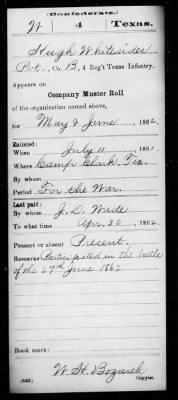 (Confederate.)
W 4 Texas.
Hugh Whitesides
Pvt., Co. B, 4 Reg't Texas Infantry.
Appears on
Company Muster Roll
of the organization named above,
for May & June, 1862.
Enlisted:
When July 11, 1861.
Where Camp Clark, Tex.
By whom
Period For the War.
Last paid:
By whom J. D. Wade
To what time Apr. 30, 1862.
Present or absent Present.
Remarks: Participated in the battle
of the 27th June 1862.
Book mark:
W. H. Bozarch
(642) Copyist.